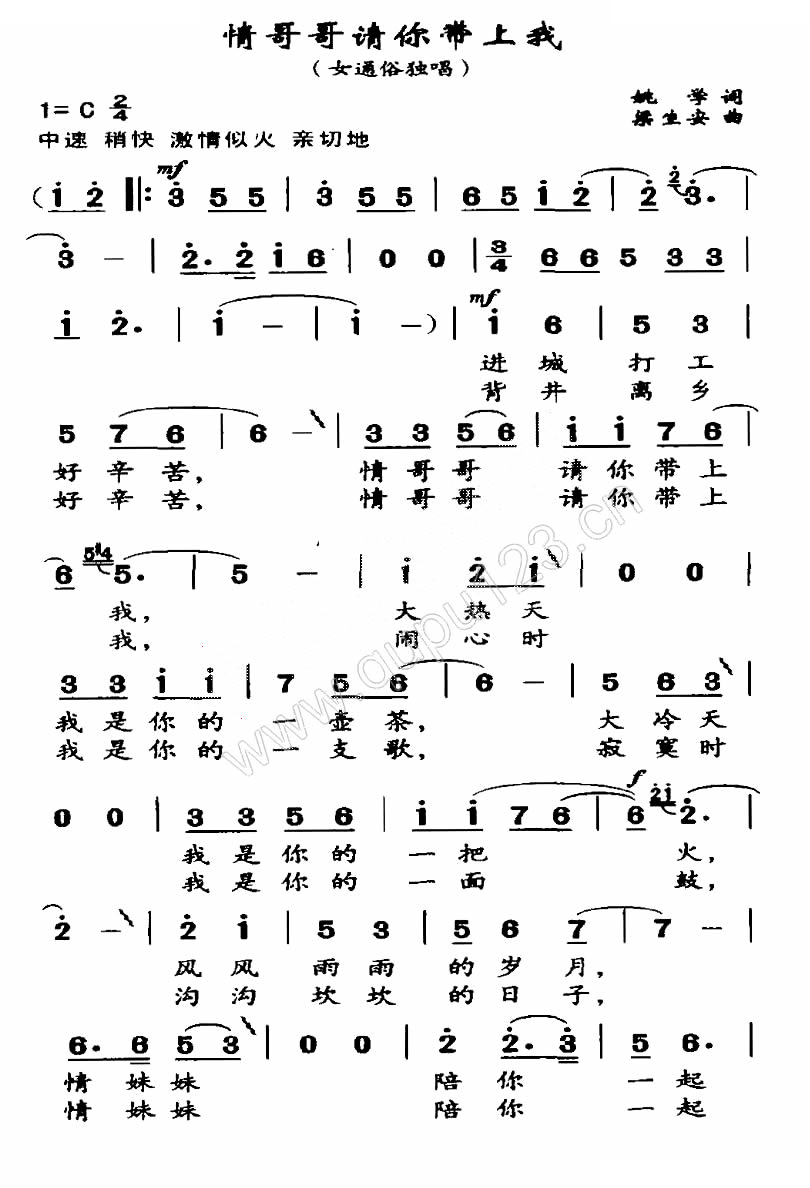 情哥哥请你带上我
(女通俗独唱)
1=C 2/4
姚学词
梁生安曲
中速 稍快 激情似火 亲切地
mf
(i 2 ‖: 3 5 5 | 3 5 5 | 6 5 i 2 | 2 2 3. |
3 – | 2. 2 i 6 | 0 0 | 3/4 6 6 5 3 3 |
mf
i 2. | i – | i –) | i 6 | 5 3 |
进城 打工
背井 离乡
5 7 6 | 6 – | 3 3 5 6 | i i 7 6 |
好辛苦, 情哥哥 请你带上
好辛苦, 情哥哥 请你带上
6 5#4 5. | 5 – | i 2 i | 0 0 |
我, 大热天
我, 闹心时
3 3 i i | 7 5 6 | 6 – | 5 6 3 |
我是你的 一壶茶, 大冷天
我是你的 一支歌, 寂寞时
f
0 0 | 3 3 5 6 | i i 7 6 | 6 2i 2. |
我是你的 一把 火,
我是你的 一面 鼓,
2 – | 2 i | 5 3 | 5 6 7 | 7 – |
风风 雨雨 的岁月,
沟沟 坎坎 的日子,
6. 6 5 3 | 0 0 | 2 2. 3 | 5 6. |
情妹妹 陪你 一起
情妹妹 陪你 一起
www.qupu123.cn